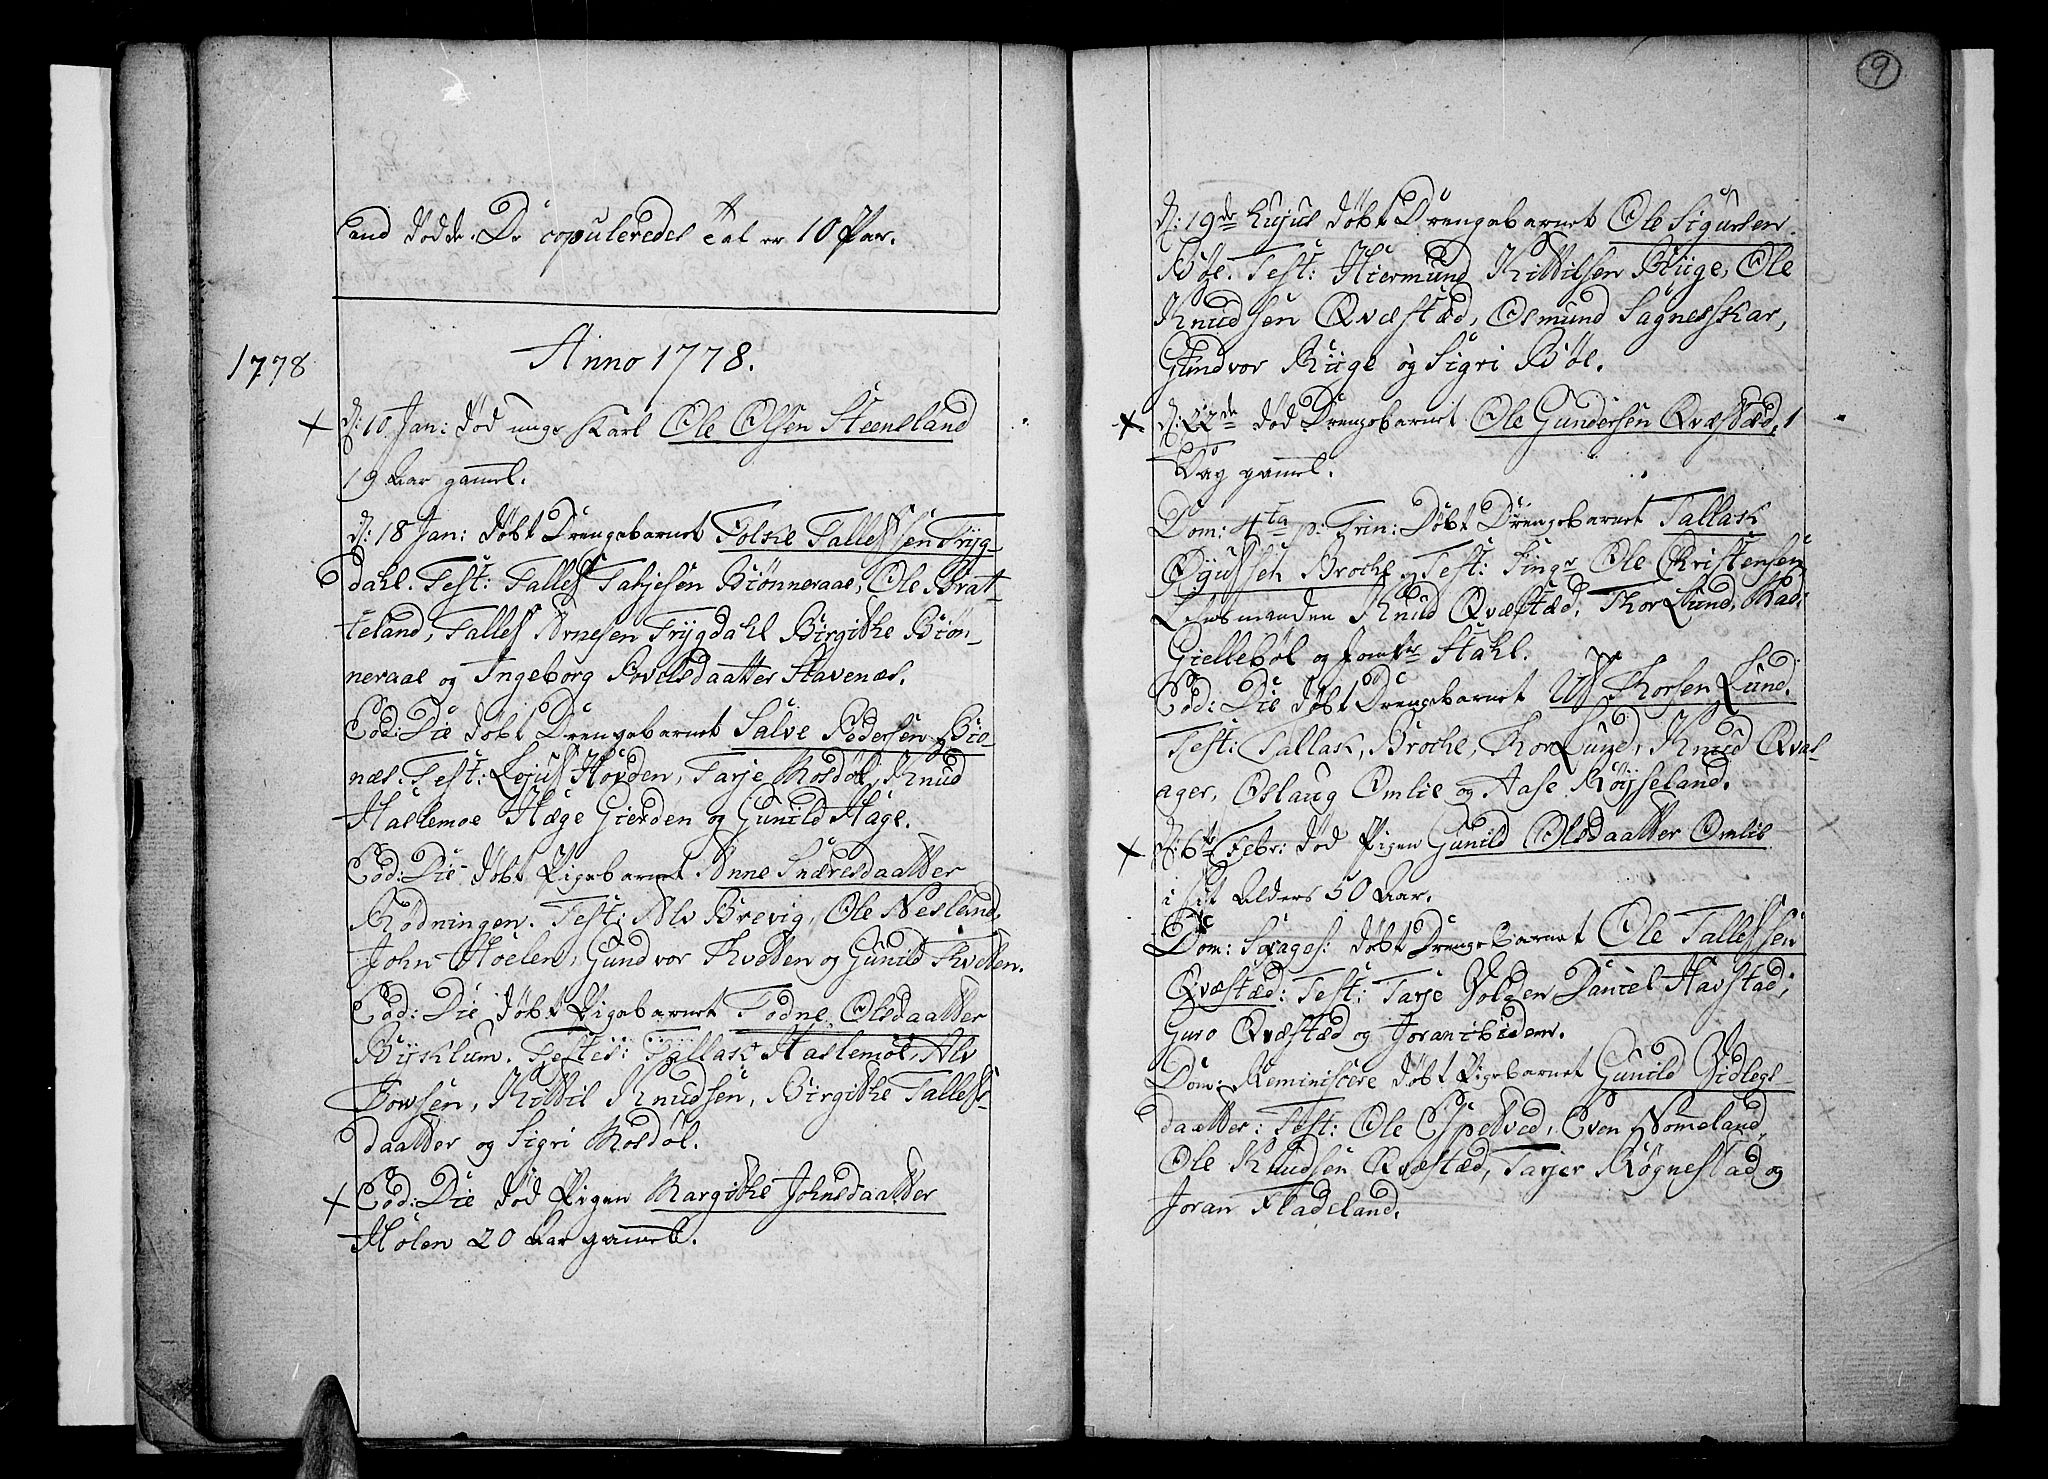 and døde. De copuleredes Tal er 10 Par.
1778
Anno 1778.
d: 10 Jan: død unge Karl Ole Olsen Steensland
19 Aar gamel.
d: 18 Jan: døbt Drengebarnet Folke Tallefsen Tryg-
dahl. Test: Tallef Tarjesen Biønneraae, Ole Brat-
teland, Tallef Arnesen Trygdahl Birgithe Biøn-
neraae og Ingeborg Povelsdaatter Stavenæs.
Eod: Die døbt Drengebarnet Salve Pedersen
næs. Test: Lejuf Hovden, Tarje Rosdøl, Knud
Haslemoe Hæge Gierden og Gunild Hage.
Eod: Die døbt Pigebarnet Anne Snaresdaatter
Rødningen. Test: Alv Brevig, Ole Nesland,
John Hoelen, Gundvor Kvetten og Gunild Kvetten.
Eod: Die døbt Pigebarnet Todne Olsdaatter
Bysklum. Testes: Tallak Haslemoe, Alv
Kittil Knudsen, Birgithe Tallefs-
daatter og Sigri Rosdøl.
Eod: Die død Pigen Margithe Johnsdaatter
Hølen 20 Aar gamel.
9
d: 19de hujus døbt Drengebarnet Ole Sigursen
Bøe. Test: Hiermund Kittilsen Riige, Ole
Knudsen Qvæstæd, Osmund Sagneskar,
Gundvor Riige og Sigri Bøe.
d: 22de død Drengebarnet Ole Gundersen Qvæstæd, 1
Dag gamel.
Dom: 4ta p: Trin: Døbt Drengebarnet Tallak
Øyufsen Brocke. Test: Sing. Ole Christensen
Lensmanden Knud Qvæstæd, Thor Lund, Mad:
Giellebøl og Jomfr Stahl.
Eod: Die døbt Drengebarnet Thorsen Lund.
Test: Tallak Brocke, Thor Lund, Knud Qvas-
ager, Oslaug Omlie og Aase Røyseland.
d: 6te Febr: død Pigen Gunild Olsdaatter Omlie
i sit Alders 50 Aar.
Dom: Sexages: døbt Drengebarnet Ole Tallefsen
Qvæstæd: Test: Tarje Volden, Daniel Harstad,
Guro Qvæstæd og Joran ibidem.
Dom: Reminiscere døbt Pigebarnet Gunild Vidlegs
daatter: Test: Ole Espetved, Even Nomeland,
Ole Knudsen Qvæstæd, Tarjer Røgnestad og
Joran Fladeland.